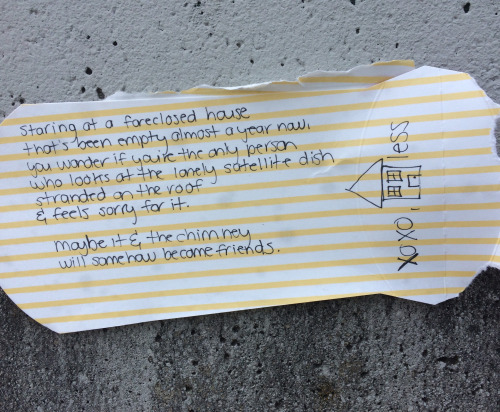 staring at a foreclosed house
that's been empty almost a year now,
you wonder if you're the only person
who looks at the lonely satellite dish
stranded on the roof
& feels sorry for it.
maybe it & the chimney
will somehow become friends.
XOXO, less